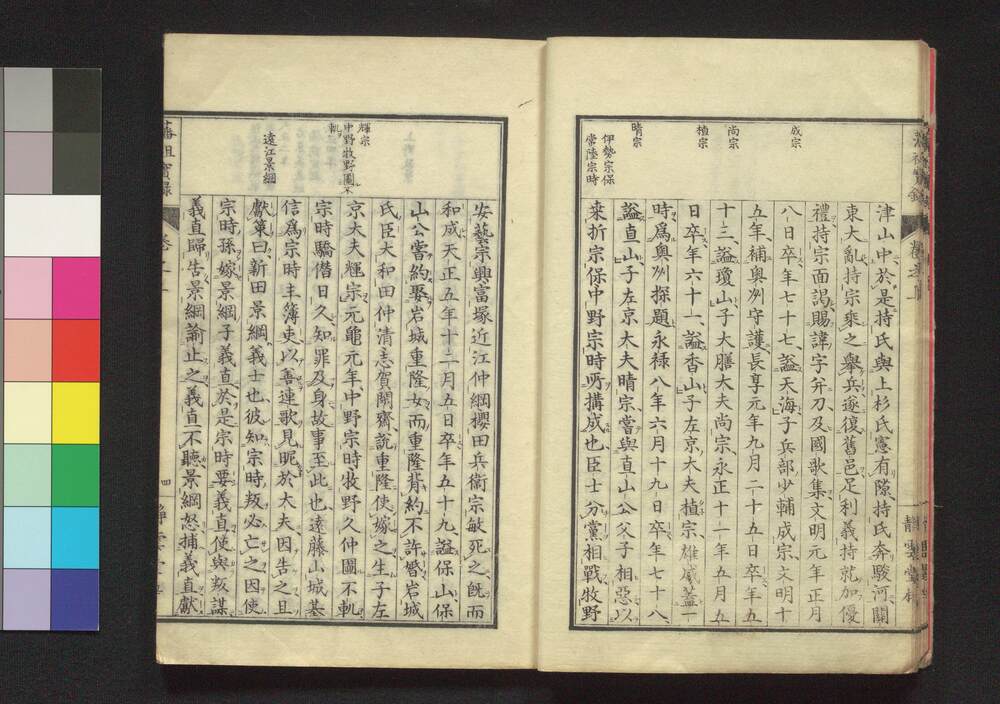 成宗
尚宗
植宗
晴宗
伊勢宗保
常陸宗時
津山中於是持氏與上杉氏憲有隙持氏奔駿河關
東大亂持宗乘之舉兵遂復舊邑足利義持就加優
禮持宗面謁賜諱字并刀及國歌集文明元年正月
八日卒年七十七謚天海子兵部少輔成宗文明十
五年補奥刕守護長享元年九月二十五日卒年五
十三謚瓊山子大膳大夫尚宗永正十一年五月五
日卒年六十一謚香山子左京大夫植宗雄威蓋一
時爲奥刕探題永禄八年六月十九日卒年七十八
謚直山子左京大夫晴宗嘗與直山公父子相惡以
来折宗保中野宗時所搆成也臣士分黨相戰牧野
輝宗
中野牧野圖不
軌
遠江景綱
安藝宗興富塚近江仲綱櫻田兵衛宗敏死之既而
和成天正五年十二月五日卒年五十九謚保山保
山公嘗約娶岩城重隆女而重隆背約不許婚岩城
氏臣大和田仲清志賀關齋說重隆使嫁之生子左
京大夫輝宗元龜元年中野宗時牧野久仲圖不軌
宗時驕僭日久知罪及身故事至此也遠藤山城基
信爲宗時主簿吏以善連歌見昵於大夫因告之且
獻策曰新田景綱義士也彼知宗時叛必亡之因使
宗時孫嫁景綱子義直於是宗時要義直使與叛謀
義直歸告景綱諭止之義直不聽景綱怒捕義直獻
四